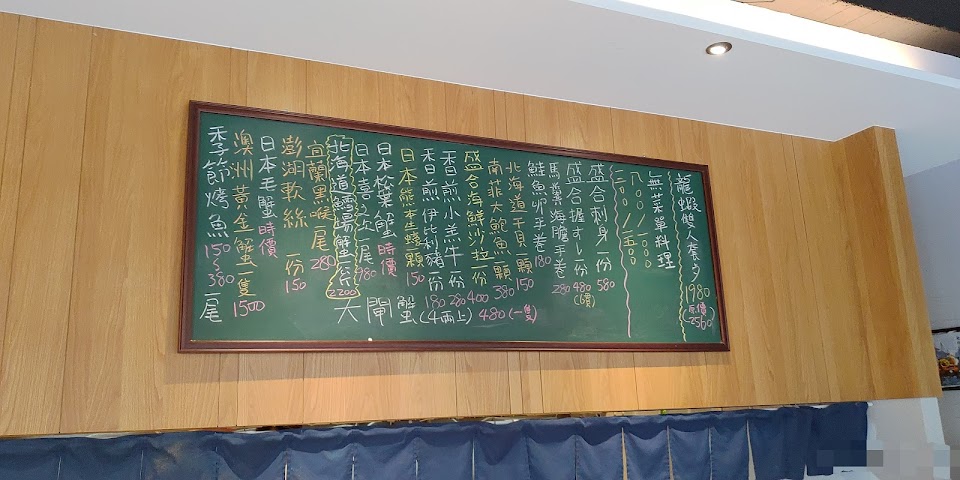 龍蝦雙人套餐 1980 原價(2560)
無菜單料理
800/1000
1200/1500
盛合刺身一份 580
盛合握すし一份 480 (6貫)
馬糞海膽手卷 280
鮭魚卵手卷 180
北海道干貝一顆 150
南非大鮑魚一顆 380
盛合海鮮沙拉一份 400
香煎小羔牛一份 280
香煎伊比利豬一份 180
日本熊本生蠔一顆 150
日本松葉蟹 時價
日本喜知次一尾 980
北海道鱈場蟹一份 2200
宜蘭黑喉一尾 280
澎湖軟絲一份 150
日本毛蟹 時價
澳洲黃金蟹一隻 1500
季節烤魚 150~380 一尾
大閘蟹(4兩上) 480(一隻)